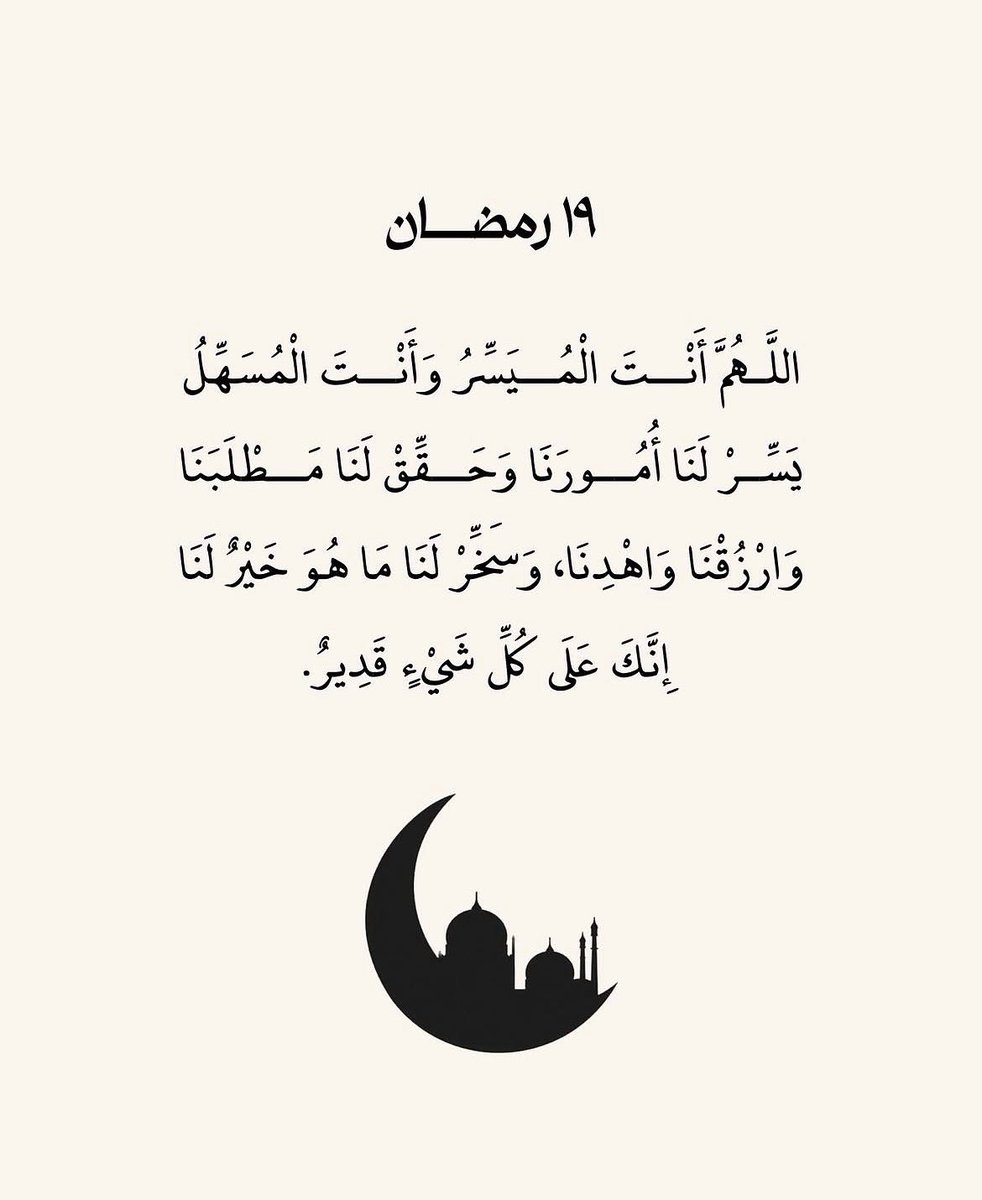 ١٩ رمضـــان
اللَّـهُمَّ أَنْـــتَ الْمُـــيَسِّرُ وَأَنْـــتَ الْمُسَهِّلُ
يَسِّـــرْ لَنَا أُمُـــورَنَا وَحَـــقِّقْ لَنَا مَـــطْلَبَنَا
وَارْزُقْنَا وَاهْدِنَا، وَسَخِّرْ لَنَا مَا هُوَ خَيْرٌ لَنَا
إِنَّكَ عَلَى كُلِّ شَيْءٍ قَدِيرٌ.